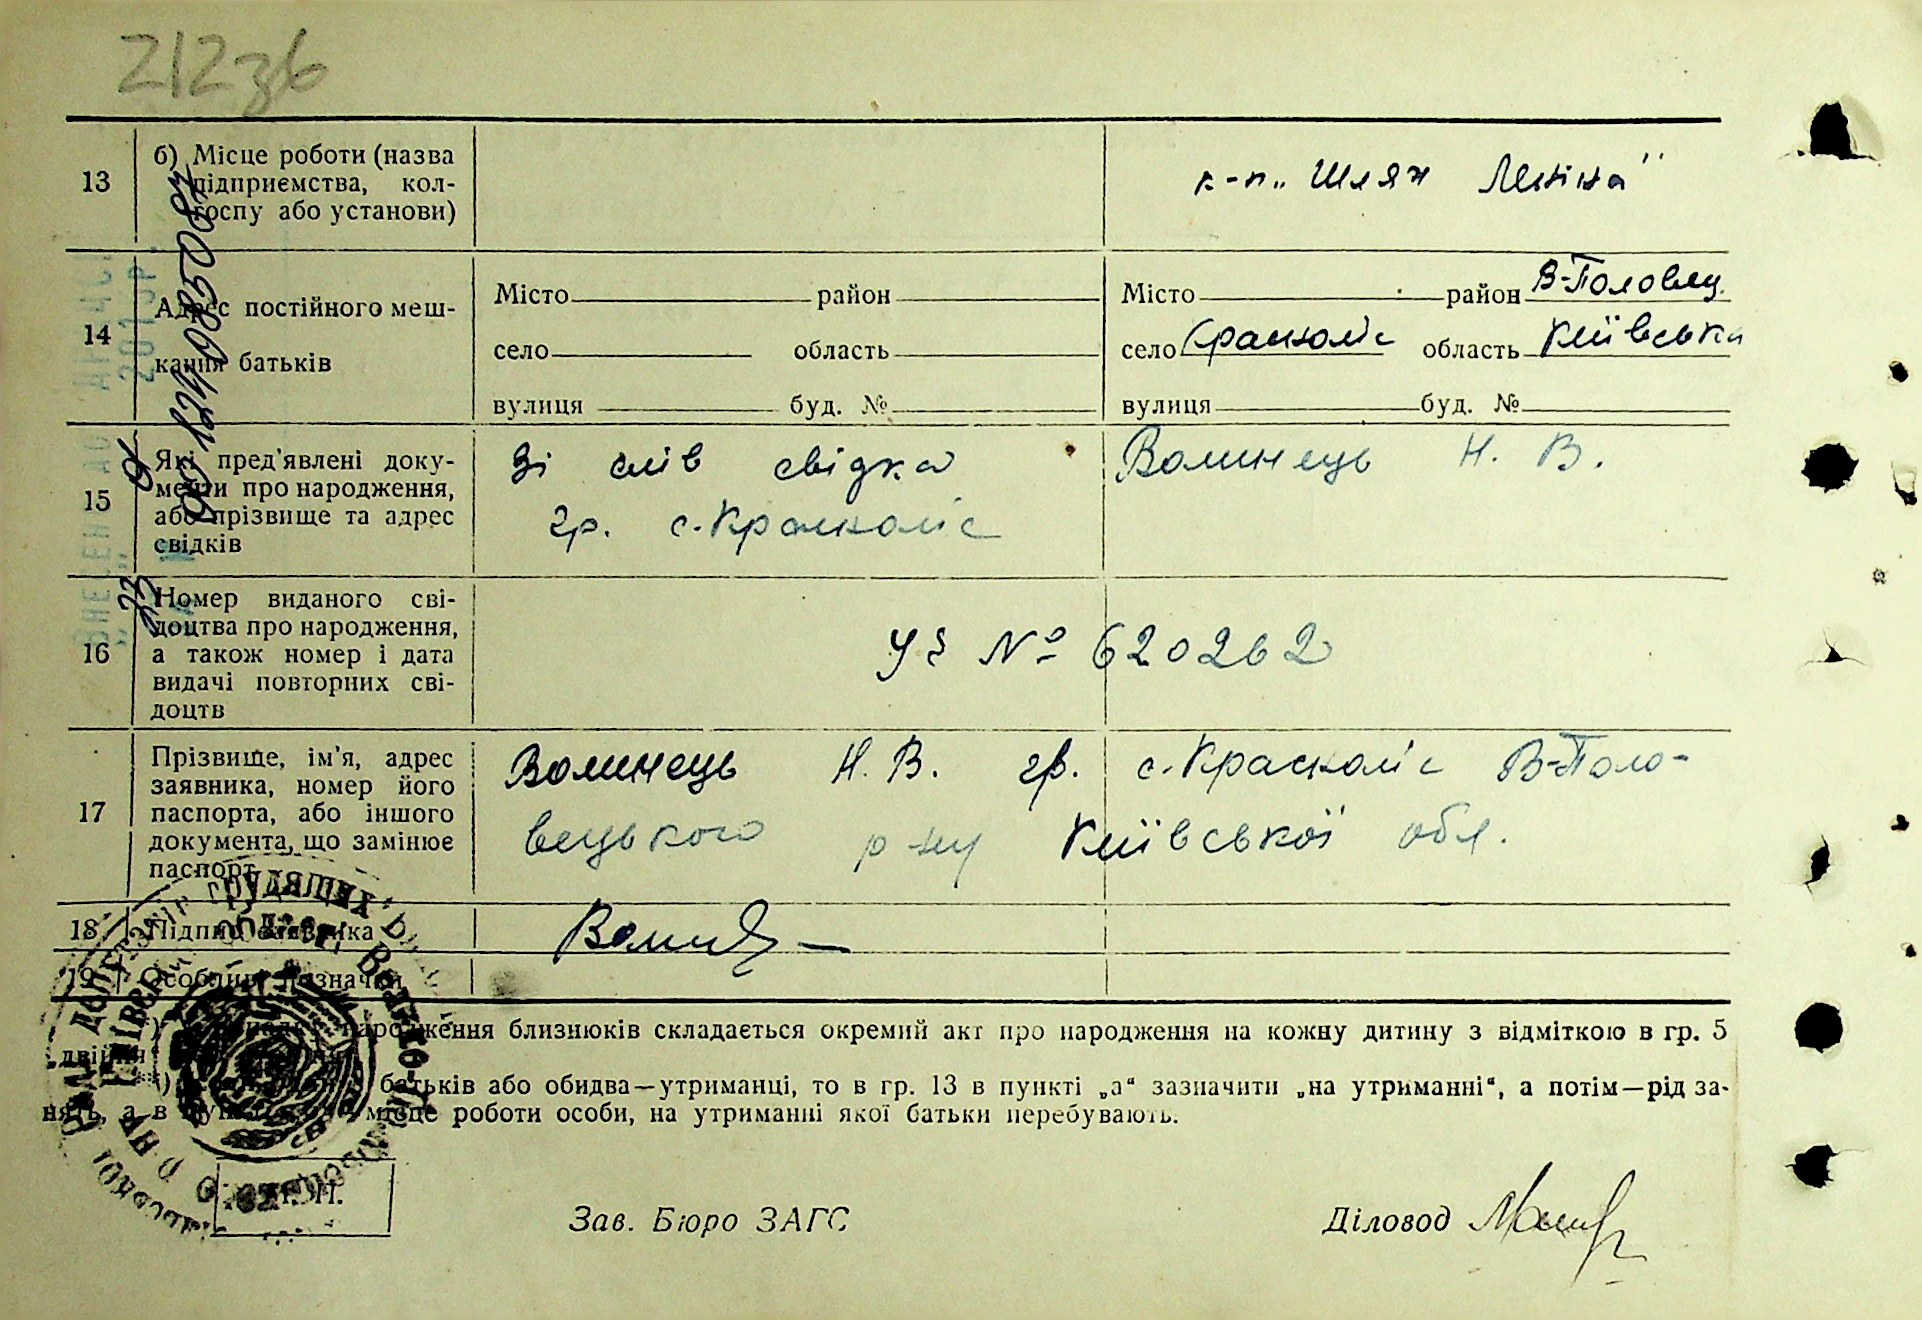 212зв
13 б) Місце роботи (назва
підприємства, кол-
госпу або установи)
к-п „Шлях Леніна"
14 Адрес постійного меш-
кання батьків
Місто район
село область
вулиця буд. №
Місто район В-Половец.
село Красноліс область Київська
вулиця буд. №
15 Які пред'явлені доку-
менти про народження,
або прізвище та адрес
свідків
Зі слів свідка Волинець Н. В.
гр. с. Красноліс
16 Номер виданого сві-
доцтва про народження,
а також номер і дата
видачі повторних сві-
доцтв
№ 620262
17 Прізвище, ім'я, адрес
заявника, номер його
паспорта, або іншого
документа, що замінює
паспорт
Волинець Н. В. гр. с. Красноліс В-Поло-
вецького р-ну Київської обл.
18 Підпис заявника
19 Особливі позначки
народження близнюків складається окремий акт про народження на кожну дитину з відміткою в гр. 5
батьків або обидва—утриманці, то в гр. 13 в пункті „а“ зазначити „на утриманні“, а потім—рід за-
нять, а в місце роботи особи, на утриманні якої батьки перебувають.
М. П.
Зав. Бюро ЗАГС
Діловод